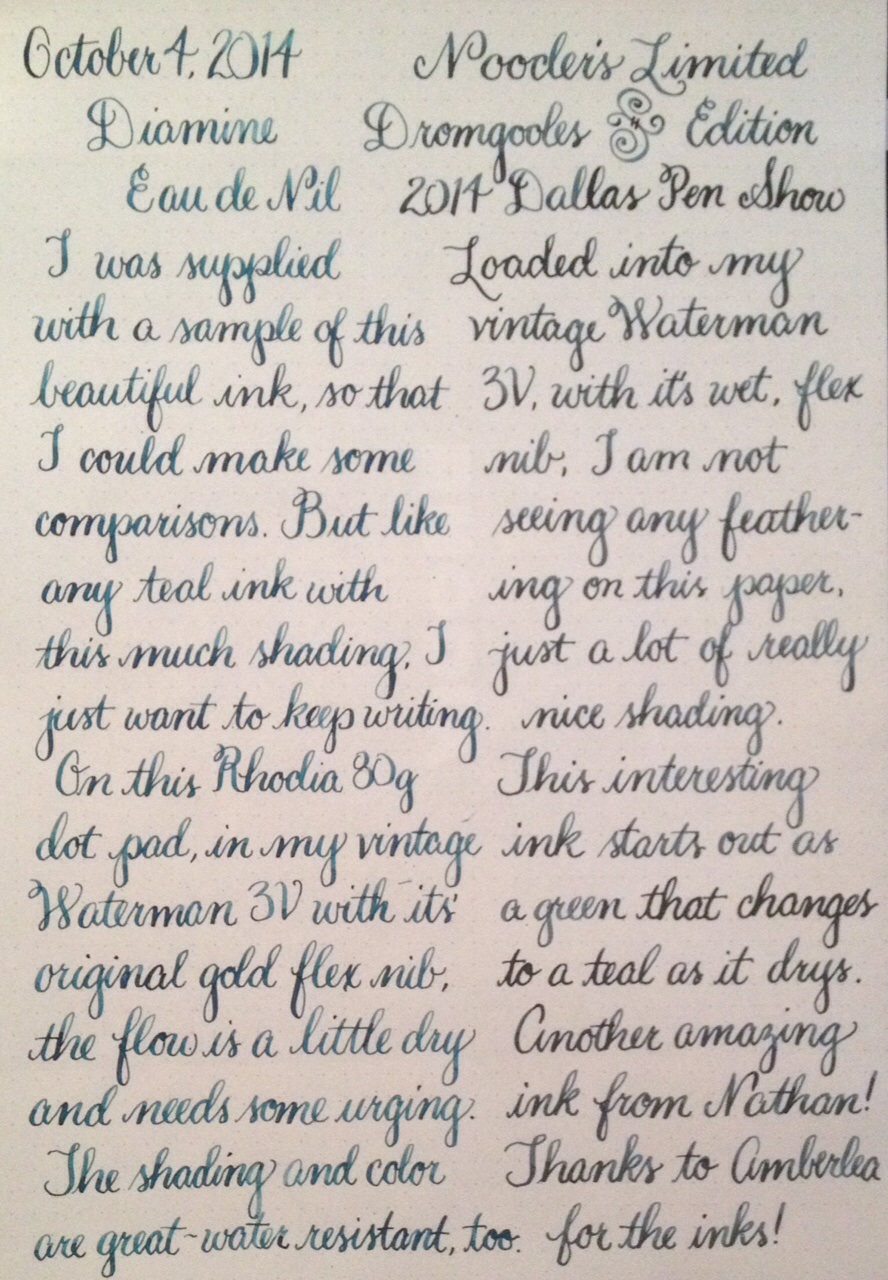 October 4, 2014
Diamine
Eau de Nil
I was supplied
with a sample of this
beautiful ink, so that
I could make some
comparisons. But like
any teal ink with
this much shading, I
just want to keep writing.
On this Rhodia 80g
dot pad, in my vintage
Waterman 3V with its'
original gold flex nib,
the flow is a little dry
and needs some urging.
The shading and color
are great-water resistant, too.
Nooder's Limited
Dromgooles Edition
2014 Dallas Pen Show
Loaded into my
vintage Waterman
3V, with it's wet, flex
nib, I am not
seeing any feather-
ing on this paper,
just a lot of really
nice shading.
This interesting
ink starts out as
a green that changes
to a teal as it drys.
Another amazing
ink from Nathan!
Thanks to Amberlea
for the inks!